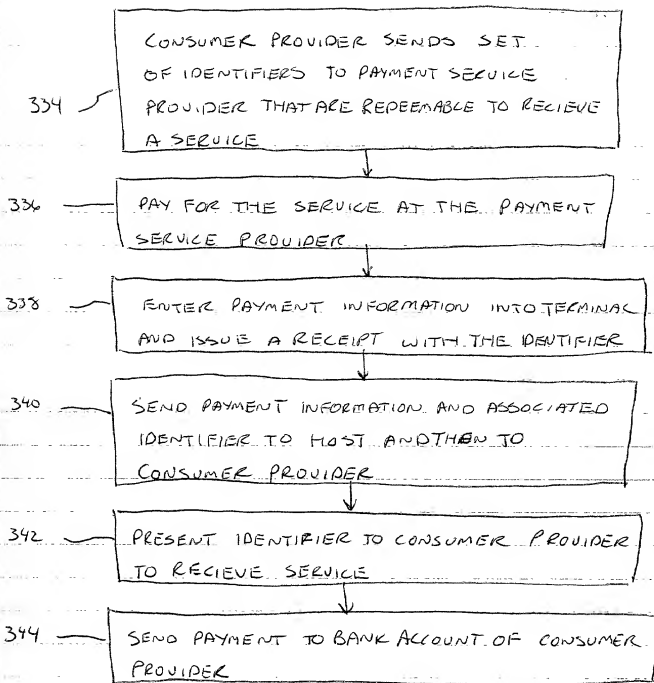 CONSUMER PROVIDER SENDS SET
OF IDENTIFIERS TO PAYMENT SERVICE
334 PROVIDER THAT ARE REDEEMABLE TO RECIEVE
A SERVICE
336 PAY FOR THE SERVICE AT THE PAYMENT
SERVICE PROVIDER
338 ENTER PAYMENT INFORMATION INTO TERMINAL
AND ISSUE A RECEIPT WITH THE IDENTIFIER
340 SEND PAYMENT INFORMATION AND ASSOCIATED
IDENTIFIER TO HOST AND THEN TO
CONSUMER PROVIDER
342 PRESENT IDENTIFIER TO CONSUMER PROVIDER
TO RECIEVE SERVICE
344 SEND PAYMENT TO BANK ACCOUNT OF CONSUMER
PROVIDER